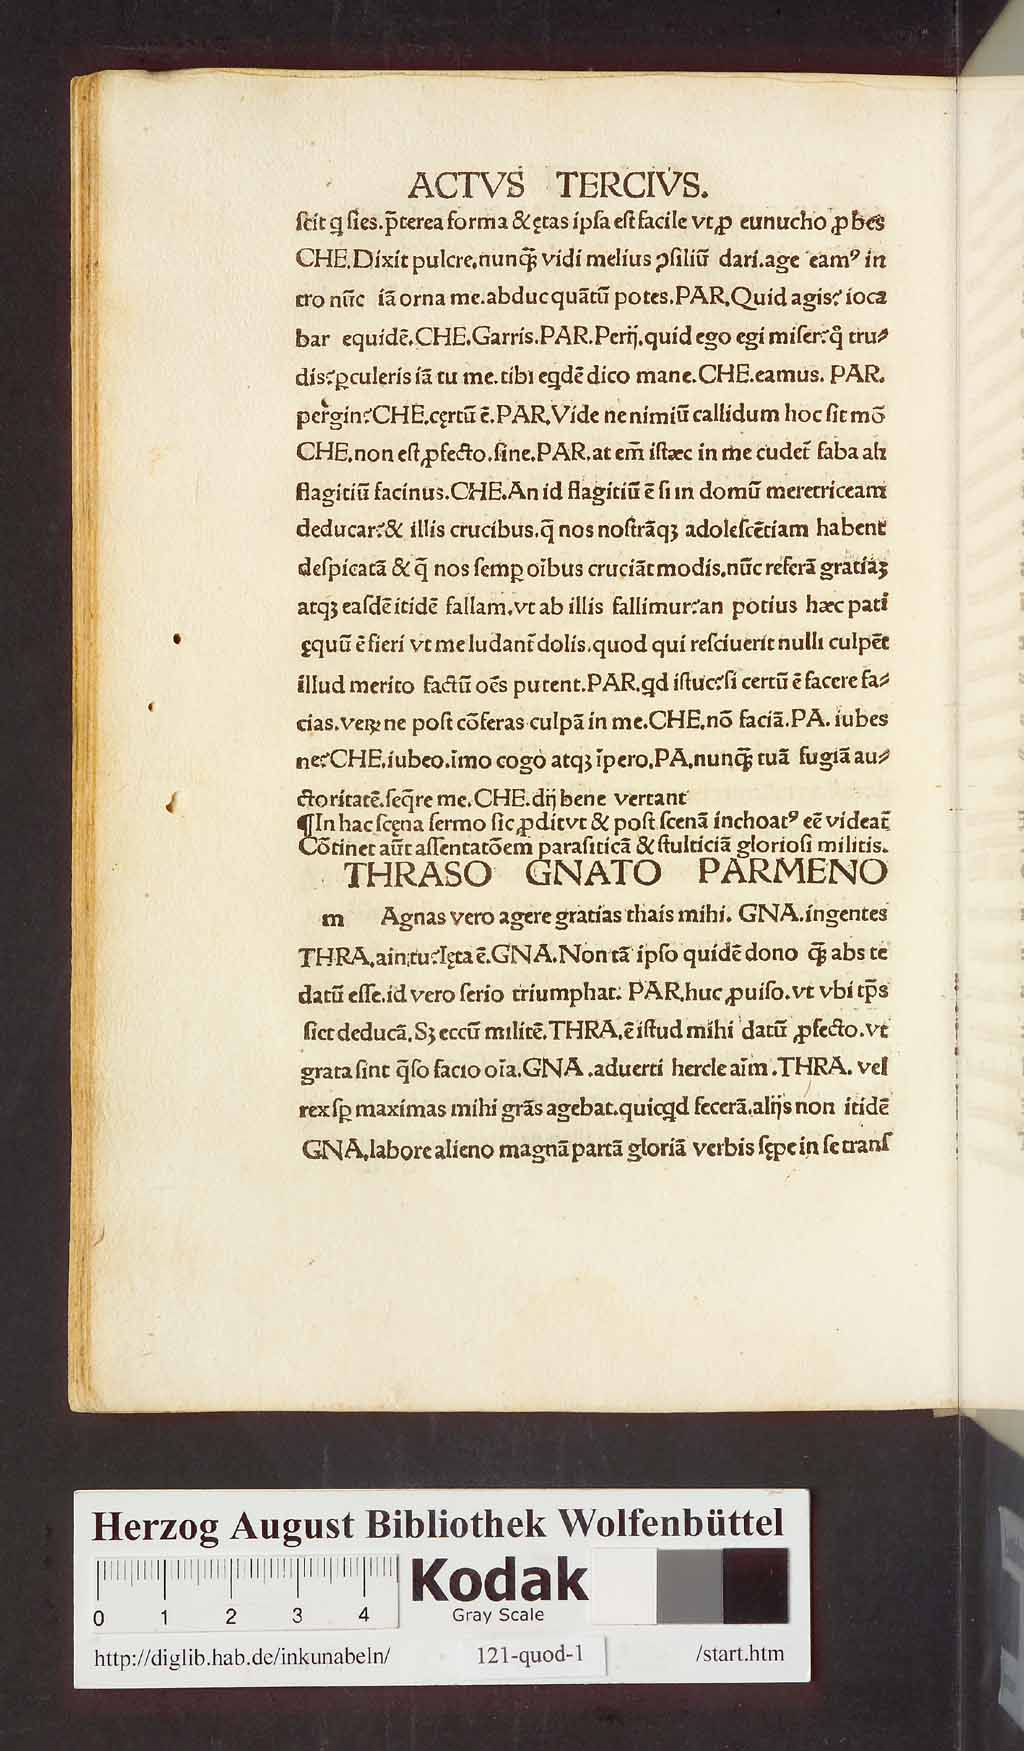 ACTVS TERCIVS.
ſcit q ſies.p̄terea forma & ętas ipſa eſt facile vt ꝓ eunucho ꝓbes
CHE.Dixit pulcre.nunq̄ vidi melius ꝯſiliū dari.age eamꝰ in
tro nūc iā orna me.abduc quātū potes.PAR.Quid agis? ioca
bar equidē.CHE.Garris.PAR.Perij.quid ego egi miſer?q̊ tru⸗
dis?ꝑculeris iā tu me.tibi eqdē dico mane.CHE.eamus. PAR.
pergin?CHE.cęrtū ē.PAR.Vide ne nimiū callidum hoc ſit mō
CHE.non eſt ꝓfecto.ſine.PAR.at em̄ iſtæc in me cudet̄ faba ah
flagitiū facinus.CHE.An id flagitiū ē ſi in domū meretriceam
deducar?& illis crucibus.q̄ nos noſtrāqꝫ adoleſcētiam habent
deſpicatā & q̄ nos ſemꝑ oībus cruciāt modis.nūc referā gratiāꝫ
atqꝫ eaſdē itidē fallam.vt ab illis fallimur?an potius hæc pati
ęquū ē fieri vt me ludant̄ dolis.quod qui reſciuerit nulli culpēt
illud merito factū oēs putent.PAR.qd iſtuc?ſi certū ē facere fa⸗
cias.veꝝ ne poſt cōferas culpā in me.CHE.nō faciā.PA. iubes
ne?CHE.iubeo.īmo cogo atqꝫ īpero.PA.nunq̄ tuā fugiā au⸗
ctoritatē.ſeq̄re me.CHE.dij bene vertant
¶In hac ſcęna ſermo ſic ꝓdit vt & poſt ſcenā inchoatꝰ eē videat̄
Cōtinet aūt aſſentatōem paraſiticā & ſtulticiā glorioſi militis.
THRASO GNATO PARMENO
m Agnas vero agere gratias thais mihi. GNA.ingentes
THRA.ain tu?lęta ē.GNA.Non tā ipſo quidē dono q̄ abs te
datū eſſe.id vero ſerio triumphat. PAR.huc ꝓuiſo.vt vbi tp̄s
ſiet deducā.Sꝫ eccū militē.THRA.ē iſtud mihi datū ꝓfecto.vt
grata ſint q̄ſo facio oīa.GNA.aduerti hercle aīm.THRA. vel
rex ſꝑ maximas mihi grās agebat.quicqd fecerā.alijs non itidē
GNA.labore alieno magnā partā gloriā verbis ſępe in ſe tranſ
Herzog August Bibliothek Wolfenbüttel
0 1 2 3 4
Kodak
Gray Scale
http://diglib.hab.de/inkunabeln/ 121-quod-1 /start.htm